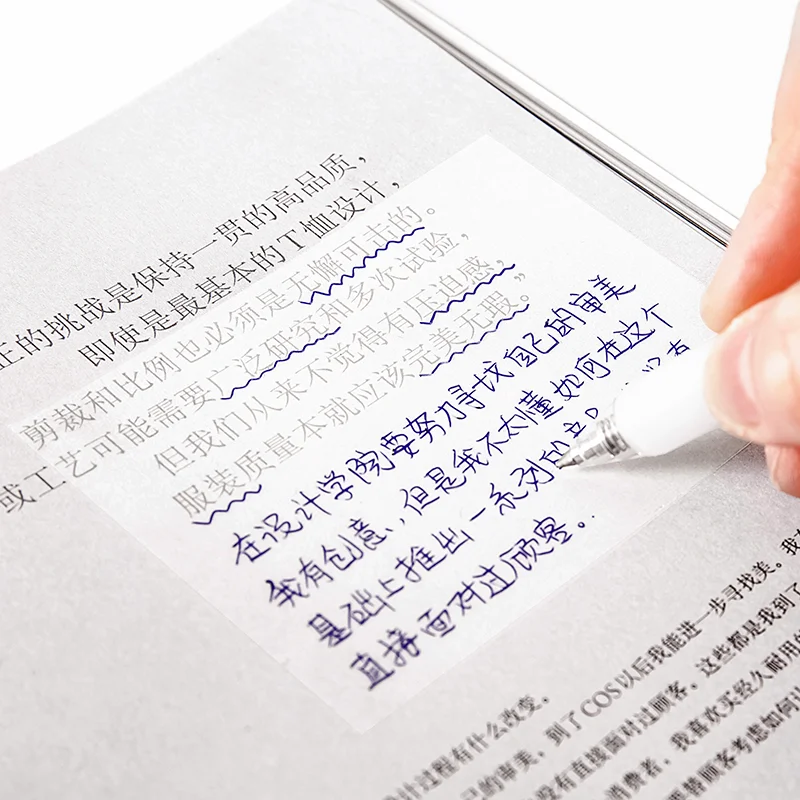 正的挑战是保持一贯的高品质，
即使是最基本的T恤设计，
剪裁和比例也必须是无懈可击的。
或工艺可能需要广泛研究和多次试验，
但我们从来不觉得有压迫感，
服装质量本就应该完美无瑕。
在设计学院要努力寻找自己的审美
我有创意，但是我不太懂如何在这个
基础上推出一系列的
直接面对过顾客。
计过程有什么改变。
己的审美，到了COS以后我能进一步寻找美。我
没有直接面对过顾客，这些都是我到了
消费者，我喜欢买经久耐用的
替顾客考虑如何